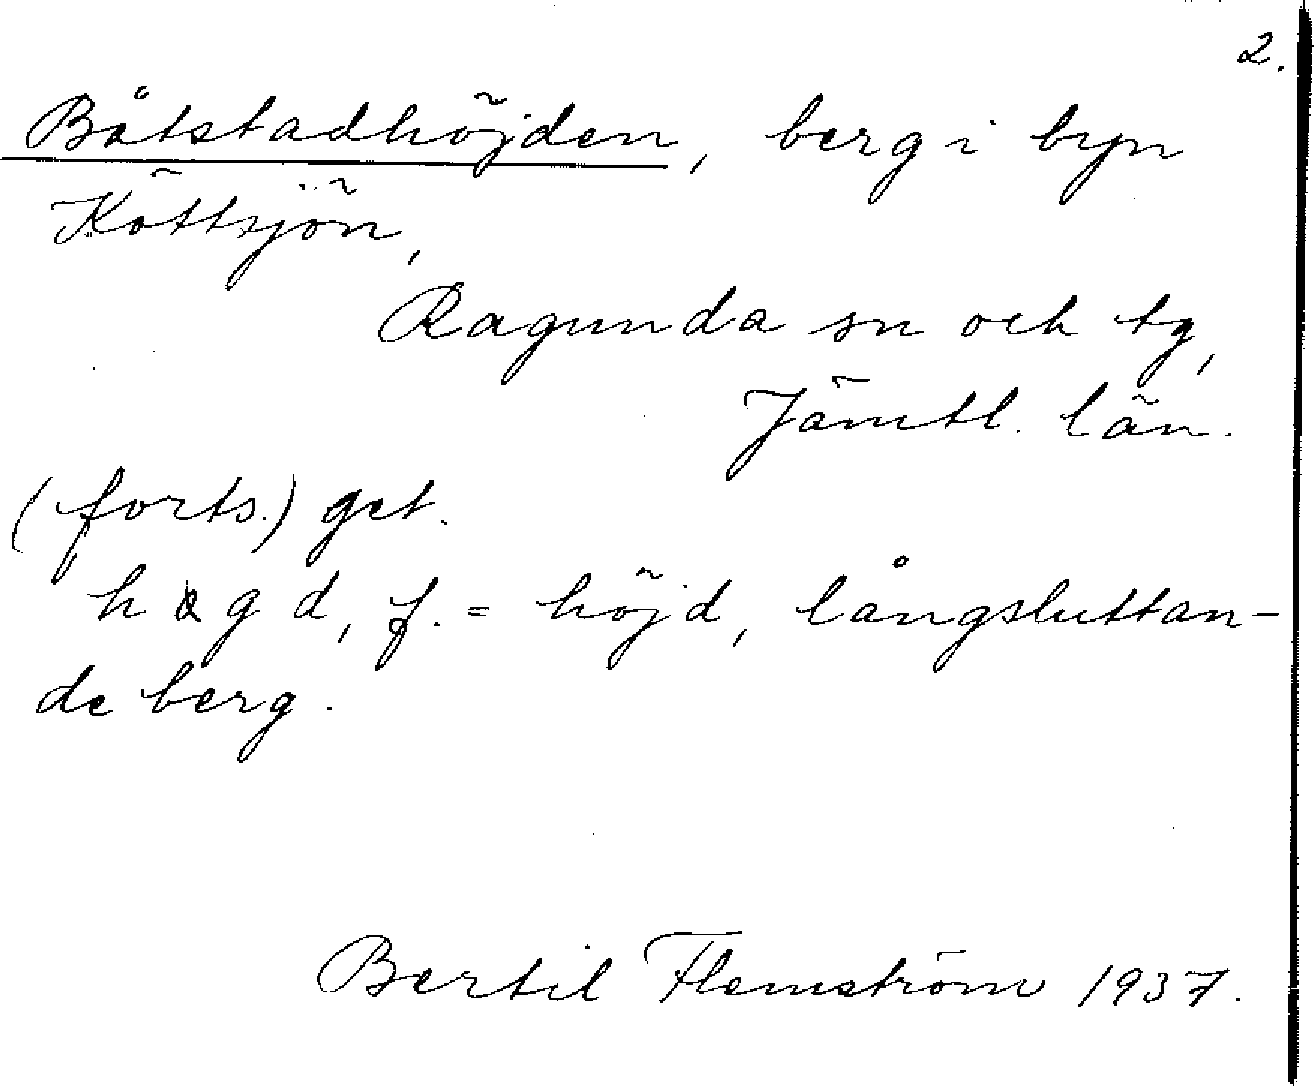 2.
Båtstadhöjden, berg i byn
Köttsjön,
Ragunda sn och tg,
Jämtl. län.
(forts.) get.
d, f. = höjd, långsluttan-
de berg.
Bertil Flemström 1937.